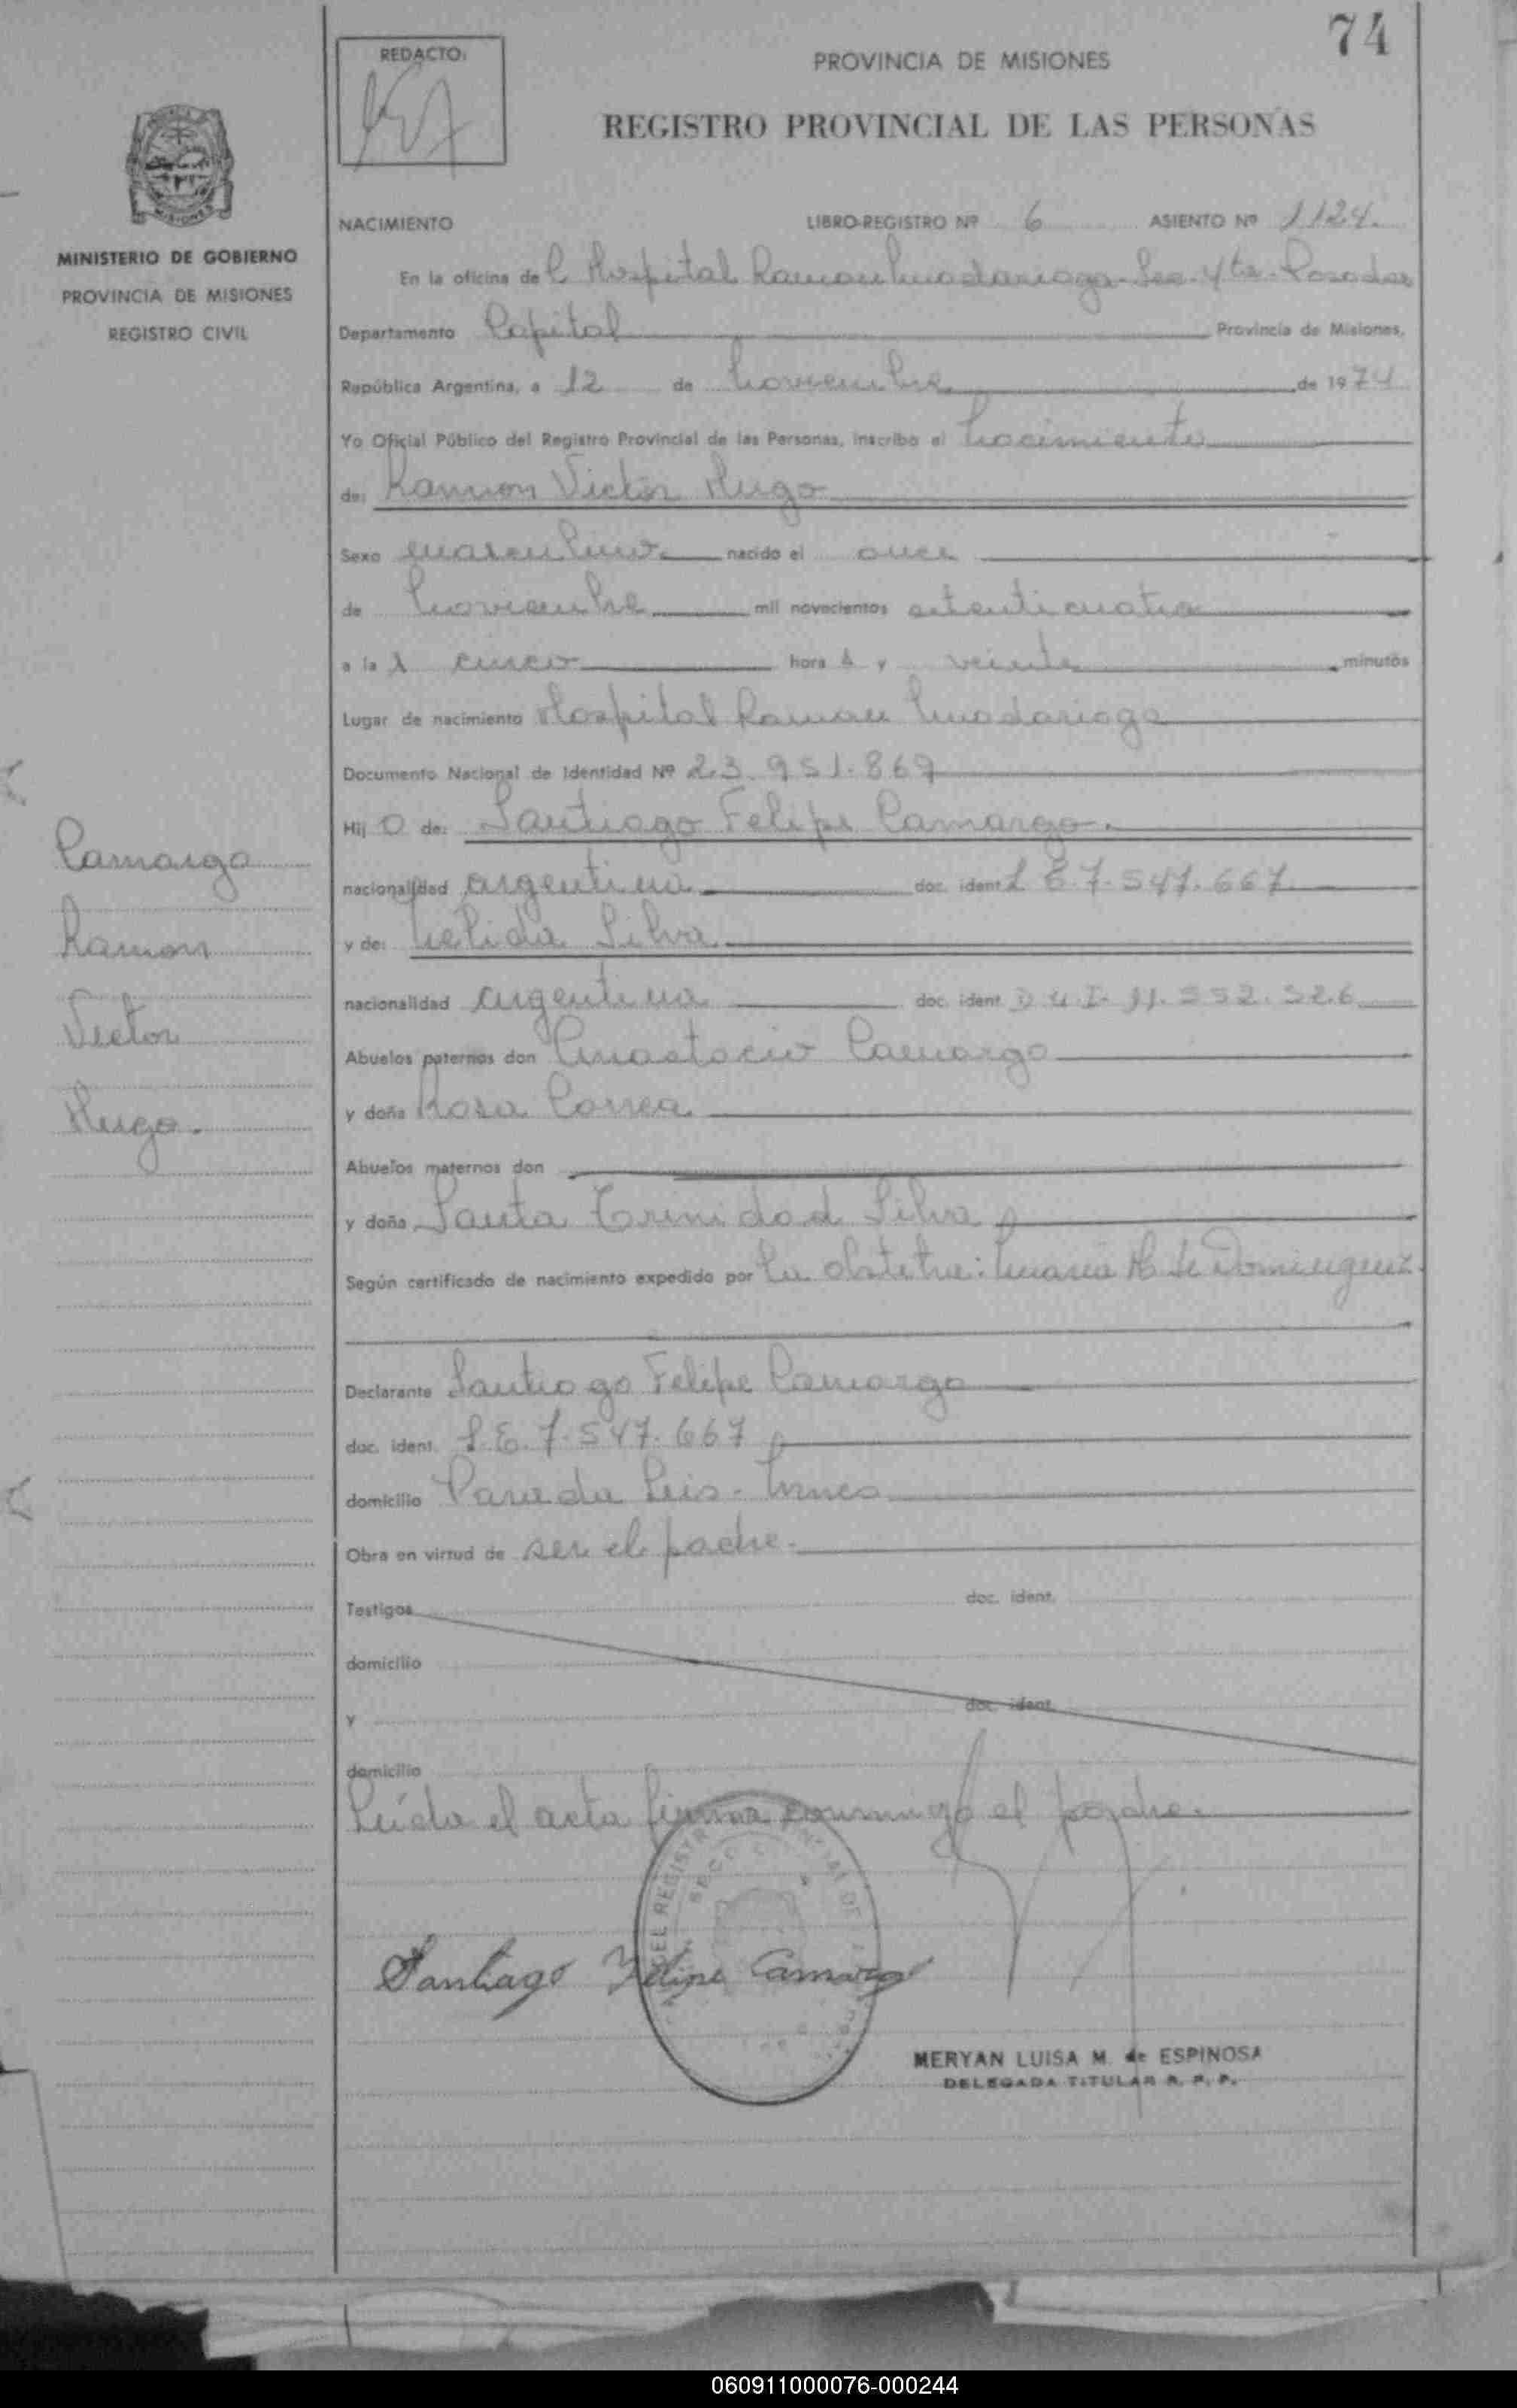 74
REDACTO:
PROVINCIA DE MISIONES
REGISTRO PROVINCIAL DE LAS PERSONAS
MISIONES
MINISTERIO DE GOBIERNO
PROVINCIA DE MISIONES
REGISTRO CIVIL
NACIMIENTO LIBRO-REGISTRO Nº 6 ASIENTO Nº 1124.
En la oficina del Hospital Ramon Madariaga - Sec. 4ta - Posadas
Departamento Capital Provincia de Misiones,
República Argentina, a 12 de Noviembre de 1974
Yo Oficial Público del Registro Provincial de las Personas, inscribo el Nacimiento
de: Ramon Victor Hugo
Sexo masculino nacido el once
de Noviembre mil novecientos setenticuatro
a las cinco horas y veinte minutos
Lugar de nacimiento Hospital Ramon Madariaga
Documento Nacional de Identidad Nº 23.951.869
Hijo de: Santiago Felipe Camargo.
nacionalidad argentina doc. ident. L E. 7.547.667
y de: Nelida Silva
nacionalidad argentina doc. ident. D N I 11.552.326
Abuelos paternos don Anastacio Camargo
y doña Rosa Correa
Abuelos maternos don
y doña Santa Trinidad Silva
Según certificado de nacimiento expedido por La obstetra: Maria de Dominguez.
Declarante Santiago Felipe Camargo
doc. ident. L.E. 7.547.667
domicilio Parada Leis -
Obra en virtud de ser el padre.
Testigos doc. ident.
domicilio
y doc. ident.
domicilio
Leída el acta firma conmigo el padre.
Camargo
Ramon
Victor
Hugo.
Santiago Felipe Camargo
MERYAN LUISA M. de ESPINOSA
DELEGADA TITULAR R. P. P.
060911000076-000244